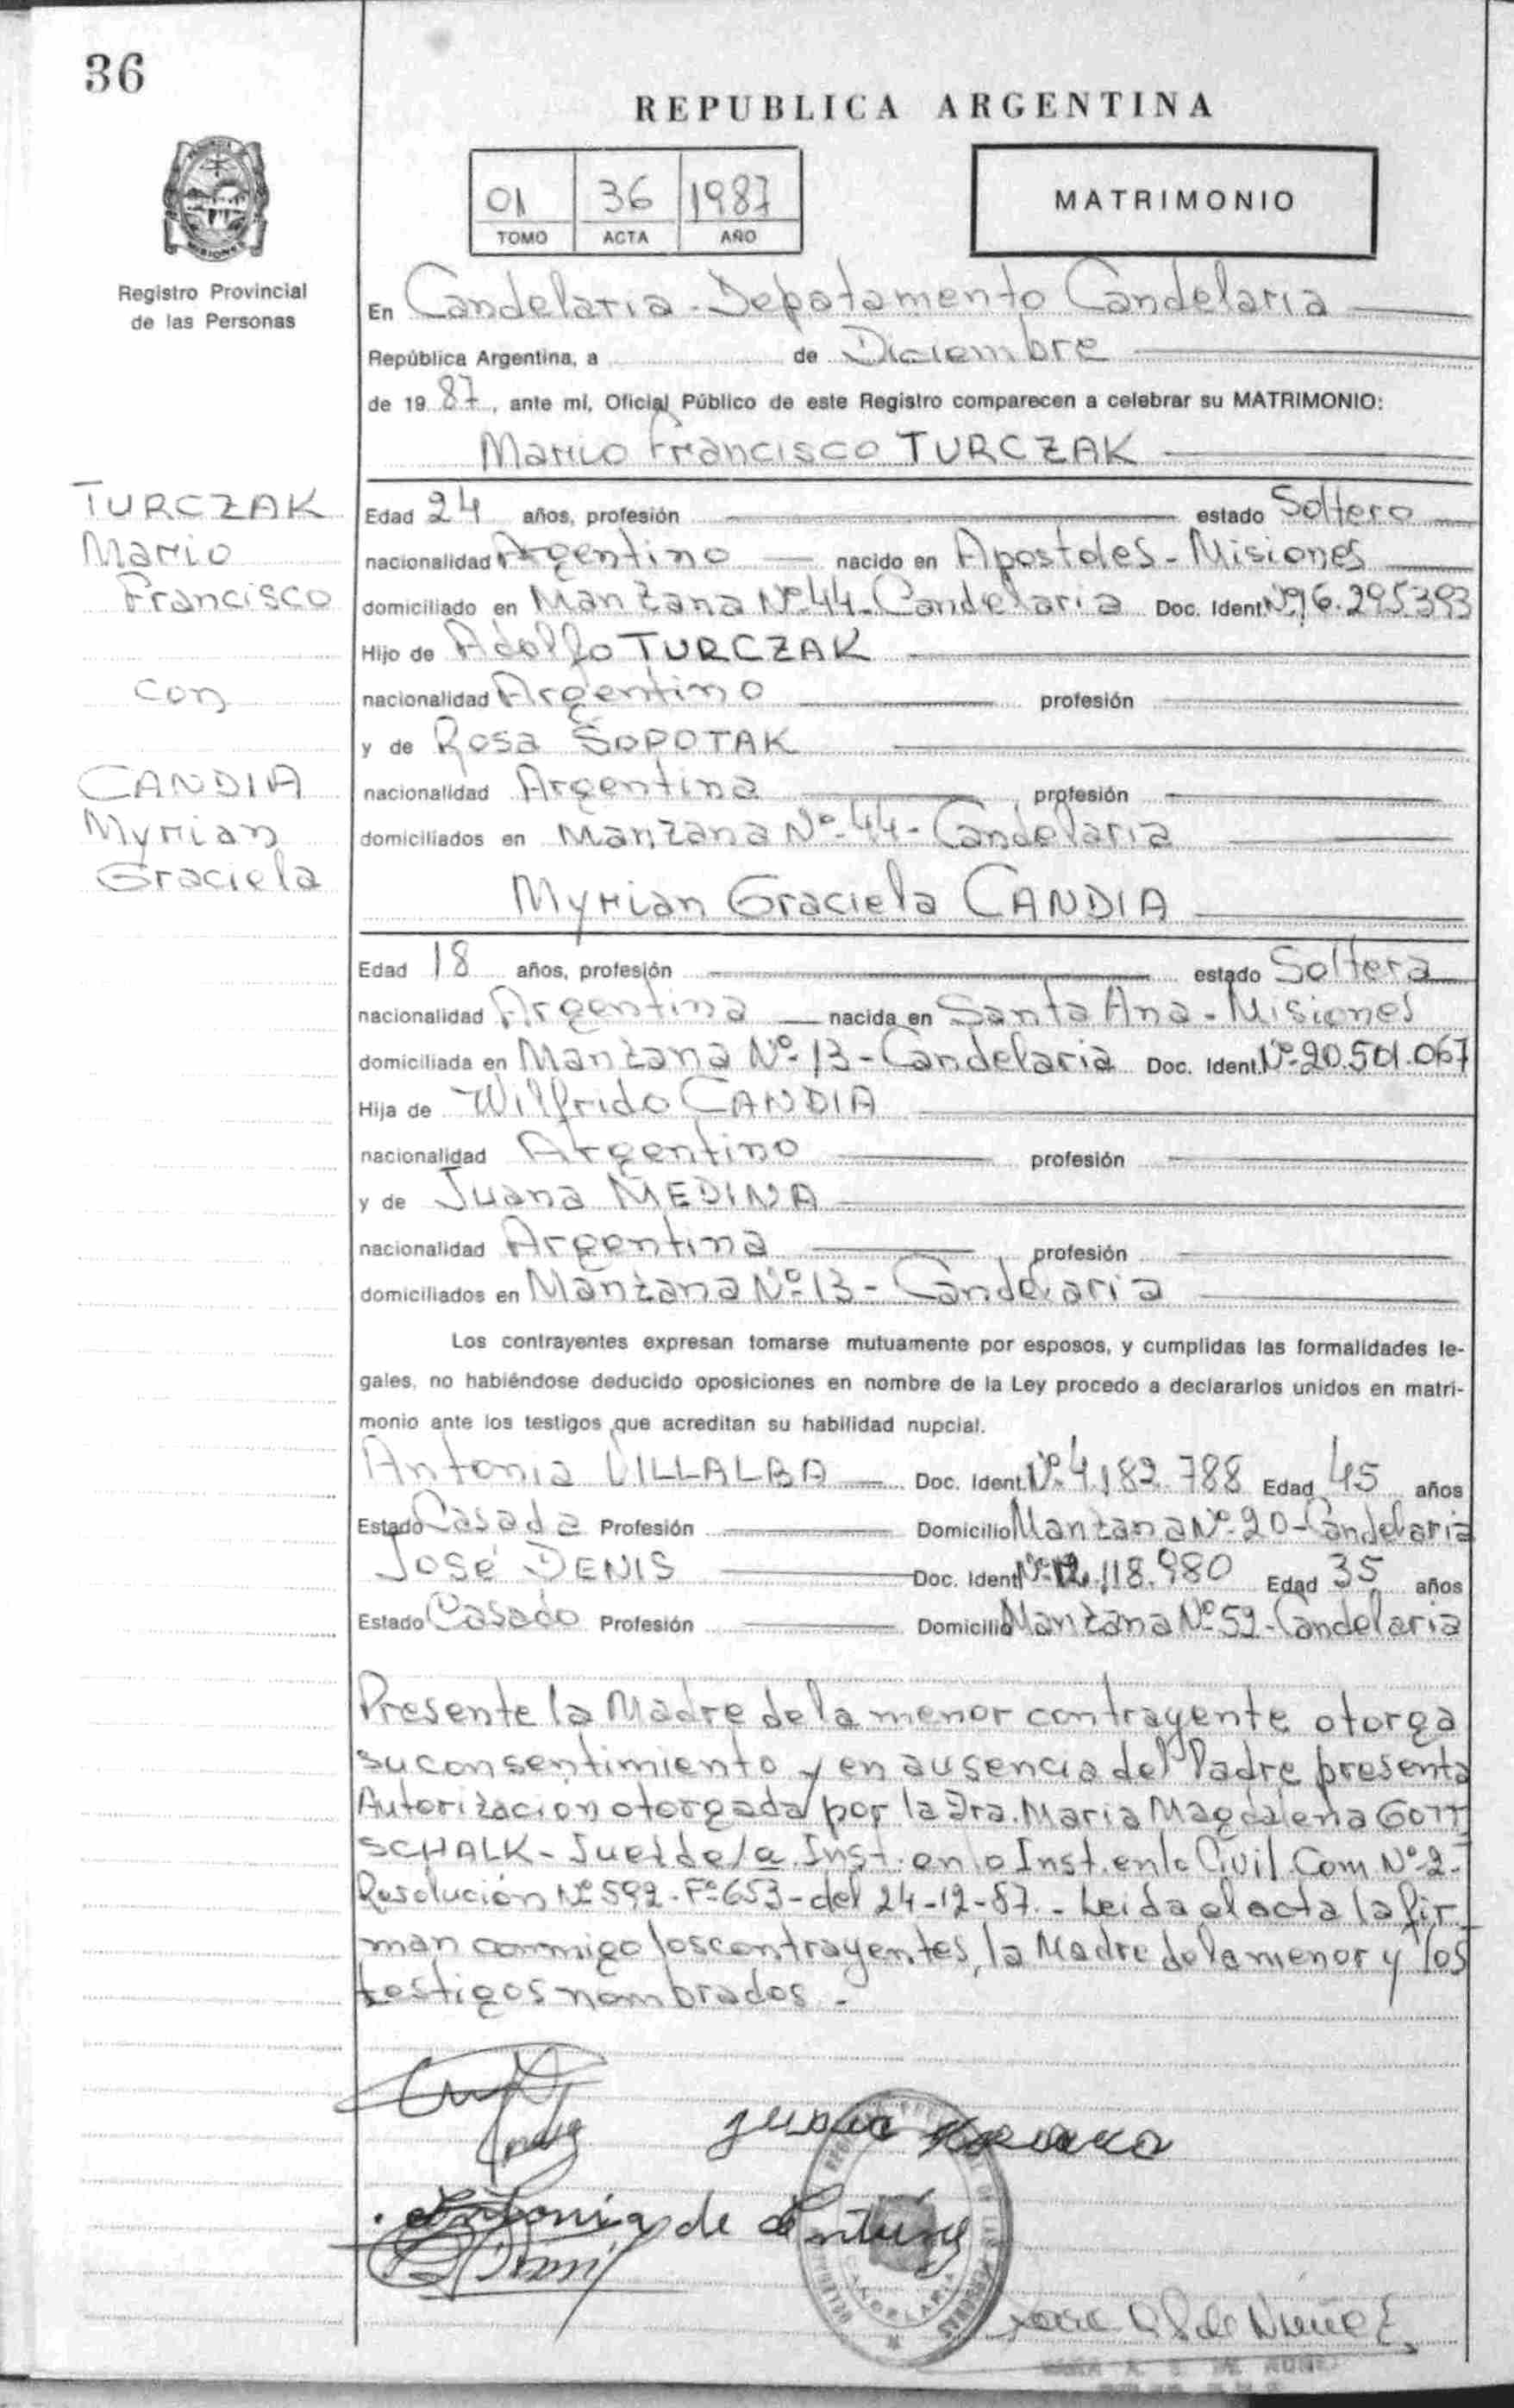 36
REPUBLICA ARGENTINA
01 36 1987
TOMO ACTA AÑO
MATRIMONIO
Registro Provincial
de las Personas
En Candelaria - Depatamento Candelaria
República Argentina, a de Diciembre
de 19 87, ante mi, Oficial Público de este Registro comparecen a celebrar su MATRIMONIO:
Mario Francisco TURCZAK
TURCZAK
Mario
Francisco
con
CANDIA
Myrian
Graciela
Edad 24 años, profesión estado Soltero
nacionalidad Argentino nacido en Apostoles - Misiones
domiciliado en Manzana Nº 44 - Candelaria Doc. Ident. Nº 16.295.393
Hijo de Adolfo TURCZAK
nacionalidad Argentino profesión
y de Rosa SOPOTAK
nacionalidad Argentina profesión
domiciliados en Manzana Nº 44 - Candelaria
Myrian Graciela CANDIA
Edad 18 años, profesión estado Soltera
nacionalidad Argentina nacida en Santa Ana - Misiones
domiciliada en Manzana Nº 13 - Candelaria Doc. Ident. Nº 20.501.067
Hija de Wilfrido CANDIA
nacionalidad Argentino profesión
y de Juana MEDINA
nacionalidad Argentina profesión
domiciliados en Manzana Nº 13 - Candelaria
Los contrayentes expresan tomarse mutuamente por esposos, y cumplidas las formalidades le-
gales, no habiéndose deducido oposiciones en nombre de la Ley procedo a declararlos unidos en matri-
monio ante los testigos que acreditan su habilidad nupcial.
Antonia VILLALBA Doc. Ident. Nº 4.182.788 Edad 45 años
Estado Casada Profesión Domicilio Manzana Nº 20 - Candelaria
José DENIS Doc. Ident. Nº 12.118.980 Edad 35 años
Estado Casado Profesión Domicilio Manzana Nº 59 - Candelaria
Presente la Madre de la menor contrayente otorga
su consentimiento y en ausencia del Padre presenta
Autorizacion otorgada por la Dra. Maria Magdalena GOTT
SCHALK - Juez de 1a Inst. en lo Inst. en lo Civil. Com. Nº 2 -
Resolución Nº 592 - Fº 653 - del 24-12-87. - Leida el acta la fir
man conmigo los contrayentes, la Madre de la menor y los
testigos nombrados -
Antonia de Antúnez
CANDELARIA